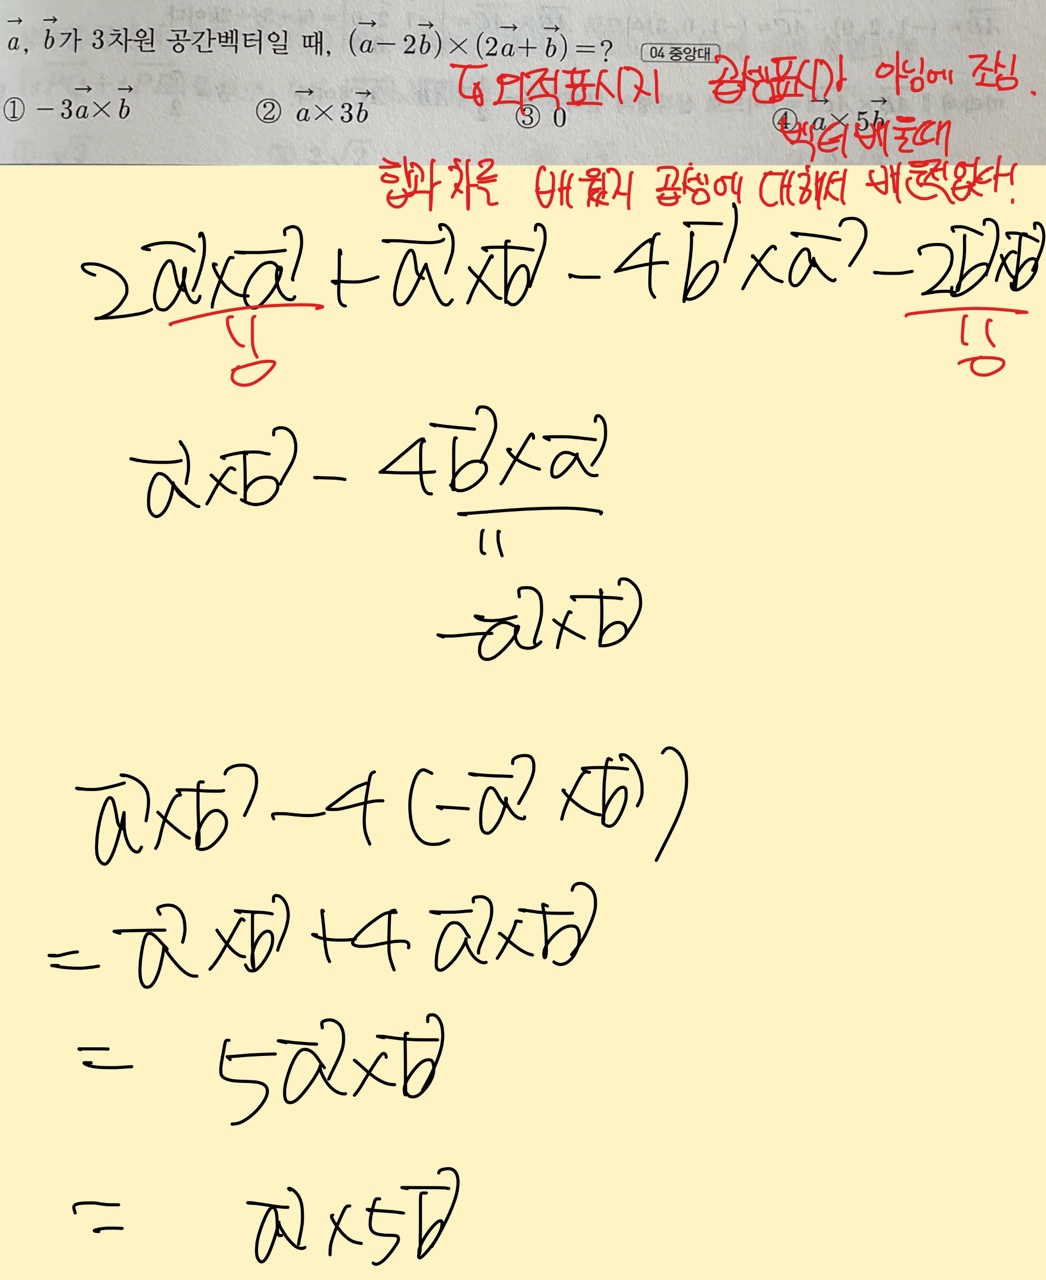 $\vec{a}$, $\vec{b}$가 3차원 공간벡터일 때, $(\vec{a}-2\vec{b})\times(2\vec{a}+\vec{b})=?$ 04 중앙대
① $-3\vec{a}\times\vec{b}$ ② $\vec{a}\times3\vec{b}$ ③ 0 ④ $\vec{a}\times5\vec{b}$
외적표시지 곱셈표시가 아님에 조심.
벡터 배울때
합과 차를 배웠지 곱셈에 대해서 배운적없다!
$2\vec{a}\times\vec{a}+\vec{a}\times\vec{b}-4\vec{b}\times\vec{a}-2\vec{b}\times\vec{b}$
= 0 = 0
$\vec{a}\times\vec{b}-4\vec{b}\times\vec{a}$
=
$-\vec{a}\times\vec{b}$
$\vec{a}\times\vec{b}-4(-\vec{a}\times\vec{b})$
$=\vec{a}\times\vec{b}+4\vec{a}\times\vec{b}$
$=5\vec{a}\times\vec{b}$
$=\vec{a}\times5\vec{b}$